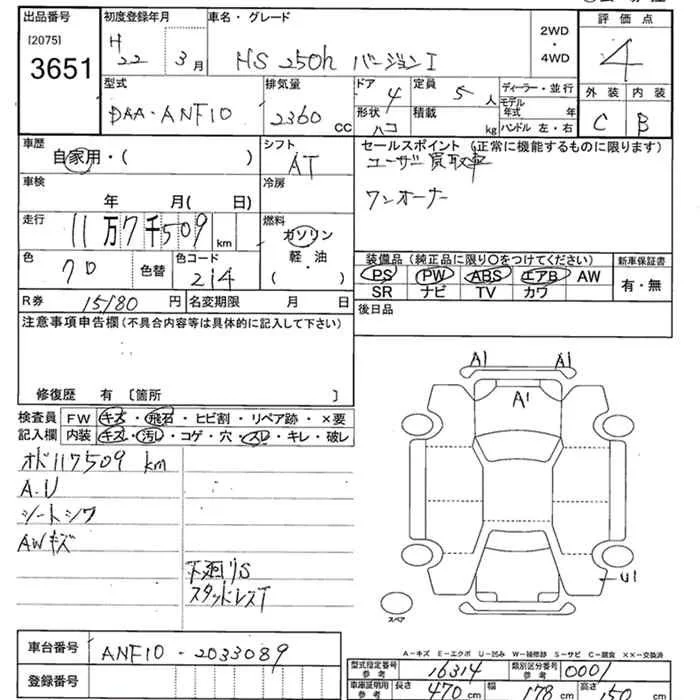 出品番号
[2075]
3651
初度登録年月
H 22 3月
車名・グレード
HS 250h バージョンI
2WD
・
4WD
評価点
4
外装 内装
C B
型式
DAA-ANF10
排気量
2360 cc
ドア 4
形状 ハコ
定員 5人
積載 kg
ディーラー・並行
モデル年式 年
ハンドル 左・右
車歴
自家用・( )
シフト
AT
車検
年 月( 日)
冷房
走行
11万7千509 km
燃料
ガソリン
軽・油
・
( )
色
クロ
色替
色コード
214
R券 15180円
名変期限 月 日
セールスポイント(正常に機能するものに限ります)
ユーザー買取車
ワンオーナー
装備品(純正品に限り○をつけてください)
PS PW ABS エアB AW
SR ナビ TV カワ
新車保証書
有・無
後日品
注意事項申告欄(不具合内容等は具体的に記入して下さい)
修復歴 有〔箇所 〕
検査員記入欄
FW キズ・飛石・ヒビ割・リペア跡・×要
内装 キズ・汚レ・コゲ・穴・スレ・キレ・破レ
オド117509 km
A.U
シートシワ
AWキズ
下廻りS
スタッドレスT
A1 A1
A1
U1
スペア
A-キズ E-エクボ U-凹み W-補修跡 S-サビ C-腐食 ××-交換済
車台番号
ANF10-2033089
登録番号
型式指定番号 参考 16314
類別区分番号 参考 0001
車庫証明用 参考 長さ 470 cm 幅 178 cm 高さ 150 cm